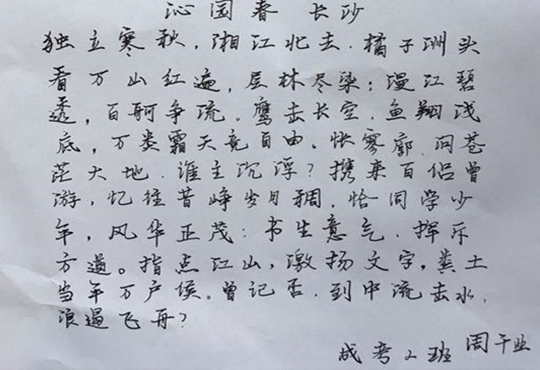 沁园春 长沙
独立寒秋，湘江北去，橘子洲头
看万山红遍，层林尽染；漫江碧
透，百舸争流。鹰击长空，鱼翔浅
底，万类霜天竞自由。怅寥廓，问苍
茫大地，谁主沉浮？携来百侣曾
游，忆往昔峥岁月稠，恰同学少
年，风华正茂：书生意气，挥斥
方遒。指点江山，激扬文字，粪土
当年万户侯。曾记否，到中流击水，
浪遏飞舟？
成考2班 周千业